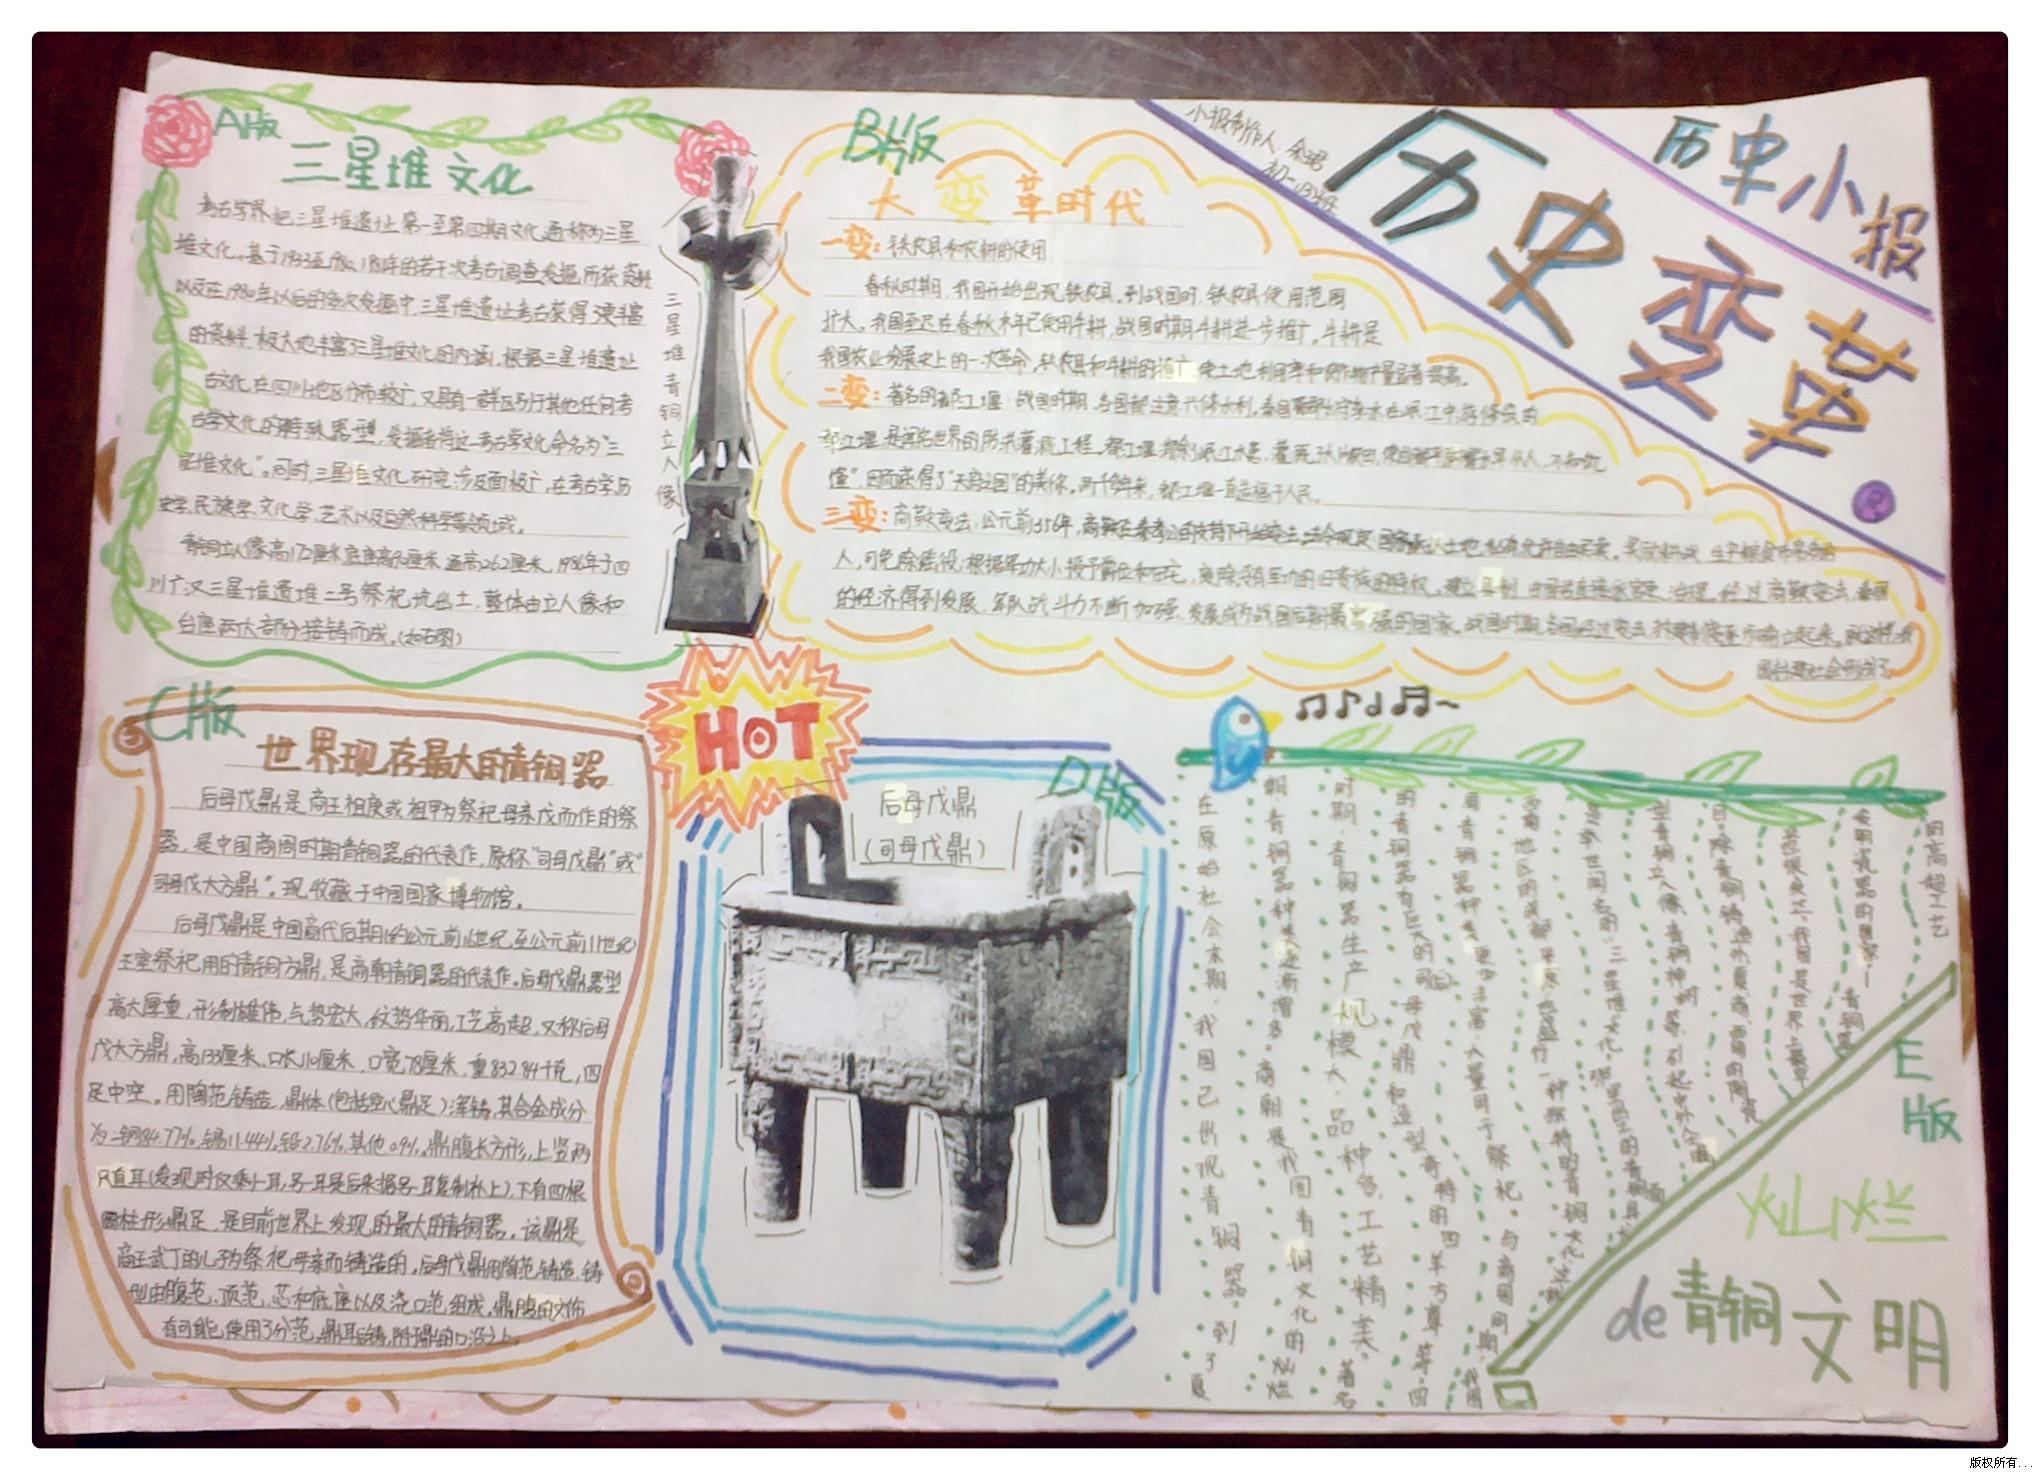 历史小报
历史变革
小报制作人 余珺
初一(3)班
A版
三星堆文化
考古学界把三星堆遗址第一至第四期文化,通称为三星
堆文化。基于1933至1980、1981年的若干次考古调查发掘所获资料
以及在1980年以后的多次发掘中,三星堆遗址考古获得了更丰富
的资料,极大地丰富了三星堆文化的内涵,根据三星堆遗址
古文化,在四川地区分布较广,又具有一群区别于其他任何考
古学文化的特殊器型,发掘者将这一考古学文化命名为“三
星堆文化”。同时,三星堆文化研究涉及面极广,在考古学、历
史学、民族学、文化学、艺术以及自然科学等领域。
青铜立人像高172厘米,底座高90厘米,通高262厘米,1986年于四
川广汉三星堆遗堆二号祭祀坑出土,整体由立人像和
台座两大部分接铸而成。(如右图)
三星堆青铜立人像
B版
大变革时代
一变:铁农具和牛耕的使用
春秋时期,我国开始出现铁农具。到战国时,铁农具使用范围
扩大。我国至迟在春秋末年已食用牛耕,战国时期牛耕进一步推广。牛耕是
我国农业发展史上的一次革命,铁农具和牛耕的推广使土地利用率和农作物产量显著提高。
二变:著名的都江堰:战国时期,各国都注意兴修水利。秦国蜀郡太守李冰在岷江中游修筑的
都江堰,是闻名世界的防洪灌溉工程。都江堰消除了岷江水患,灌溉
”,因而获得了“天府之国”的美称。两千多年来,都江堰一直造福于人民。
三变:商鞅变法:公元前356年,商鞅在秦孝公的支持下开始变法:法令规定:国家承认土地私有,允许自由买卖。奖励耕战,生产粮食布帛多的
人,可免除徭役;根据军功大小授予爵位和田宅,废除没有军功的旧贵族的特权。建立县制,由国君直接派官吏治理。经过商鞅变法,秦国
的经济得到发展,军队战斗力不断加强,发展成为战国后期最富强的国家。战国时期,各国经过变法,封建制度逐步确立起来。就这样,我
国封建社会形成了。
HOT
C版
世界现存最大的青铜器
后母戊鼎是商王祖庚或祖甲为祭祀母亲戊而作的祭
器,是中国商周时期青铜器的代表作,原称“司母戊鼎”或“
司母戊大方鼎”。现收藏于中国国家博物馆。
后母戊鼎是中国商代后期(约公元前16世纪至公元前11世纪)
王室祭祀用的青铜方鼎,是商朝青铜器的代表作。后母戊鼎器型
高大厚重,形制雄伟,气势宏大,纹势华丽,工艺高超,又称后母
戊大方鼎,高133厘米、口长110厘米、口宽78厘米、重832.84千克,四
足中空。用陶范铸造,鼎体(包括空心鼎足)浑铸,其合金成分
为:铜84.77%,锡11.44%,铅2.76%,其他0.9%。鼎腹长方形,上竖两
只直耳(发现时仅剩一耳,另一耳是后来据另一耳复制补上),下有四根
圆柱形鼎足,是目前世界上发现的最大的青铜器。该鼎是
商王武丁的儿子为祭祀母亲而铸造的。后母戊鼎用陶范铸造,铸
型由腹范、顶范、芯和底座以及浇口范组成。鼎腹的纹饰
有可能使用了分范,鼎耳后铸,附于鼎的口沿之上。
D版
后母戊鼎
(司母戊鼎)
在原始社会末期,我国已出现青铜器,到了夏
朝,青铜器种类逐渐增多,商朝是我国青铜文化的灿烂
时期,青铜器生产规模大、品种多、工艺精美。著名
的青铜器有巨大的司母戊鼎和造型奇特的四羊方尊等。西
周青铜器种类更加丰富,大量用于祭祀。与商周同期,我国
西南地区的成都平原,也盛行一种独特的青铜文化,这就
是举世闻名的“三星堆”文化,那里的青铜面具、大
型青铜立人像、青铜神树等,引起中外全瞩
目。除青铜铸造外,夏、商、西周的陶瓷
业也很发达,我国是世界上最早
使用瓷器的国家。青铜器
的高超工艺
E版
灿烂
de青铜文明
版权所有...